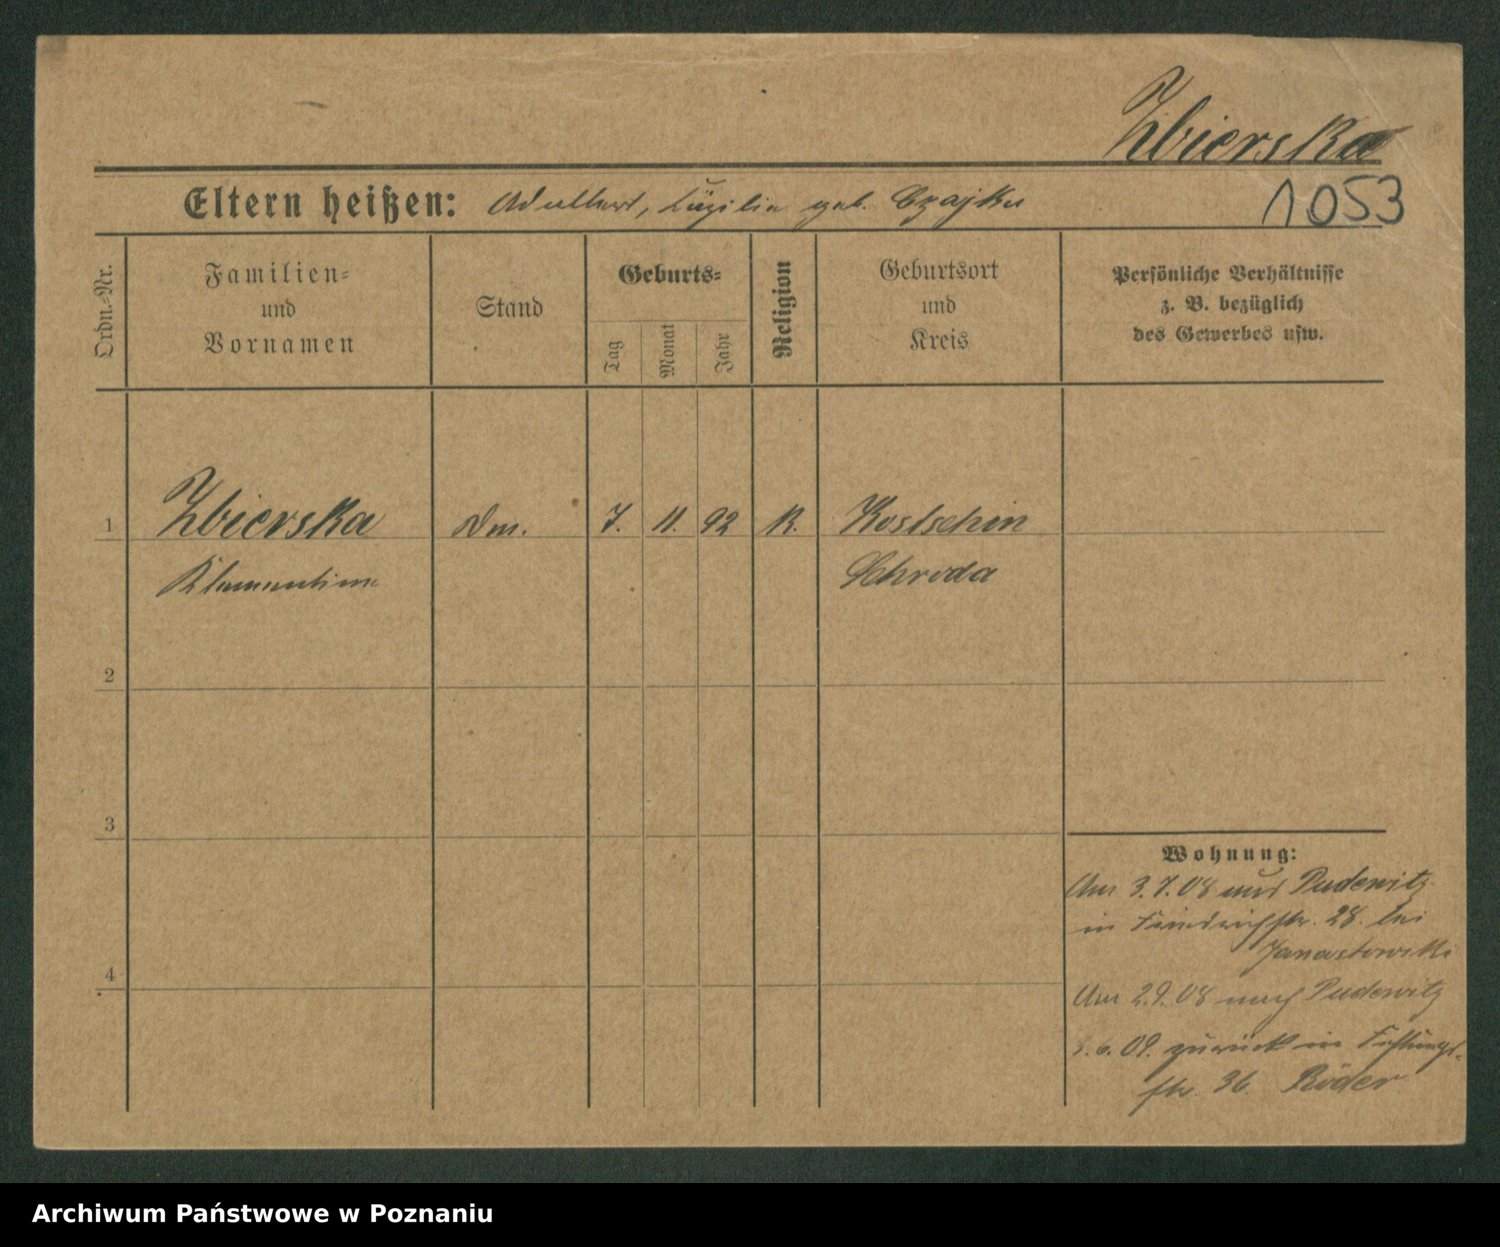 Zbierska
Eltern heißen: Adalbert, Cäzilia geb. Czajka
1053
Ordn.-Nr.
Familien-
und
Vornamen
Stand
Geburts-
Tag
Monat
Jahr
Religion
Geburtsort
und
Kreis
Persönliche Verhältnisse
z. B. bezüglich
des Gewerbes usw.
1 Zbierska 7. 11. 92 K. Kostschin
Klementine Schroda
2
3
4
Wohnung:
Am 3.7.08 aus Pudewitz
in Friedrichstr. 28. bei
Am 2.9.08 nach Pudewitz
6. 09. zurück in
str. 36. Röder
Archiwum Państwowe w Poznaniu